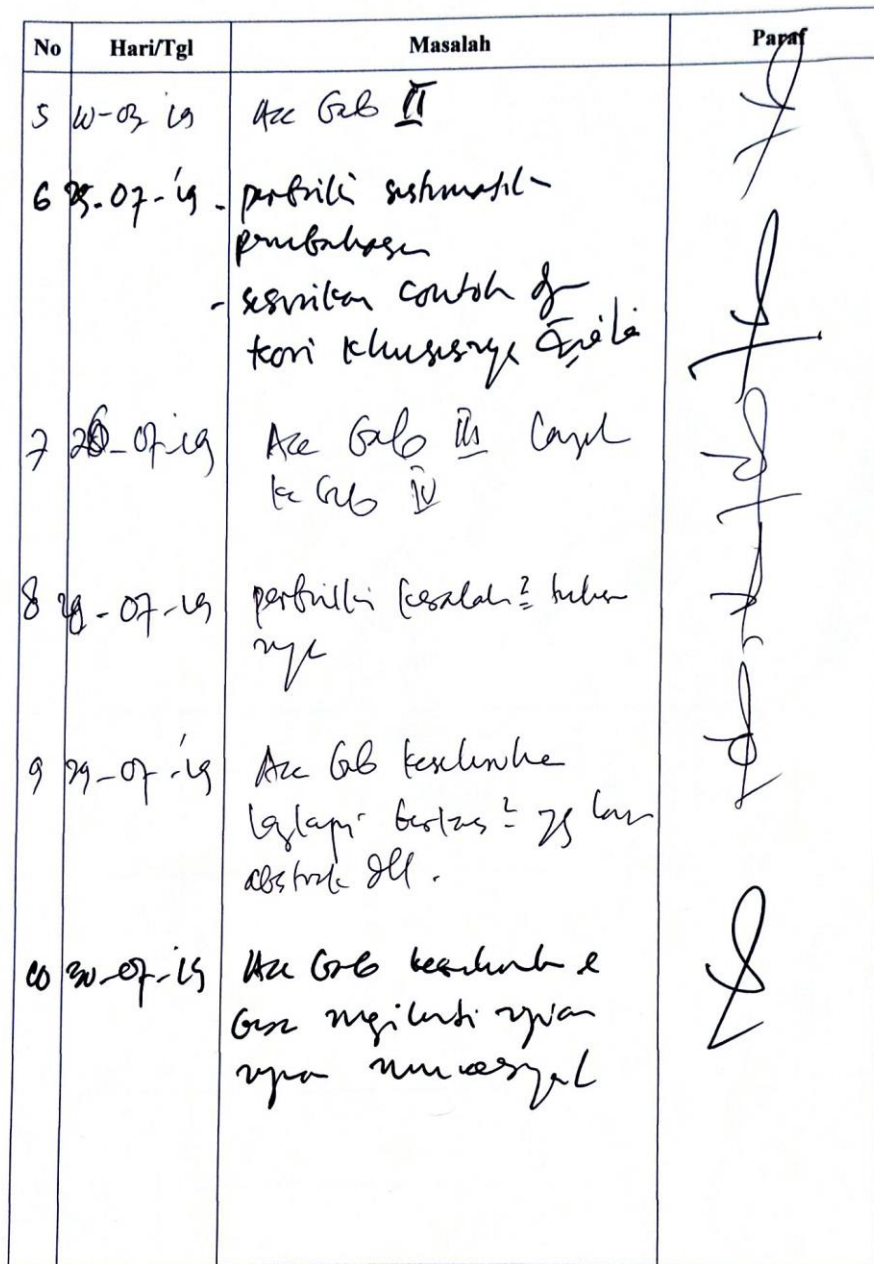 No Hari/Tgl Masalah Paraf
5 Acc Bab II
6 25-07-19 - perbaiki sistematik
pembahasan
- sesuaikan contoh dg
teori khususnya
7 -07-19 Acc Bab III Lanjut
ke Bab IV
8 -07-19 perbaiki kesalah² tulisan
nya
9 29-07-19 Acc Bab keseluruhan
lengkapi berkas² yg lain
abstrak dll.
10 30-07-19 Acc Bab keseluruhan &
bisa mengikuti ujian
ujian munaqasyah